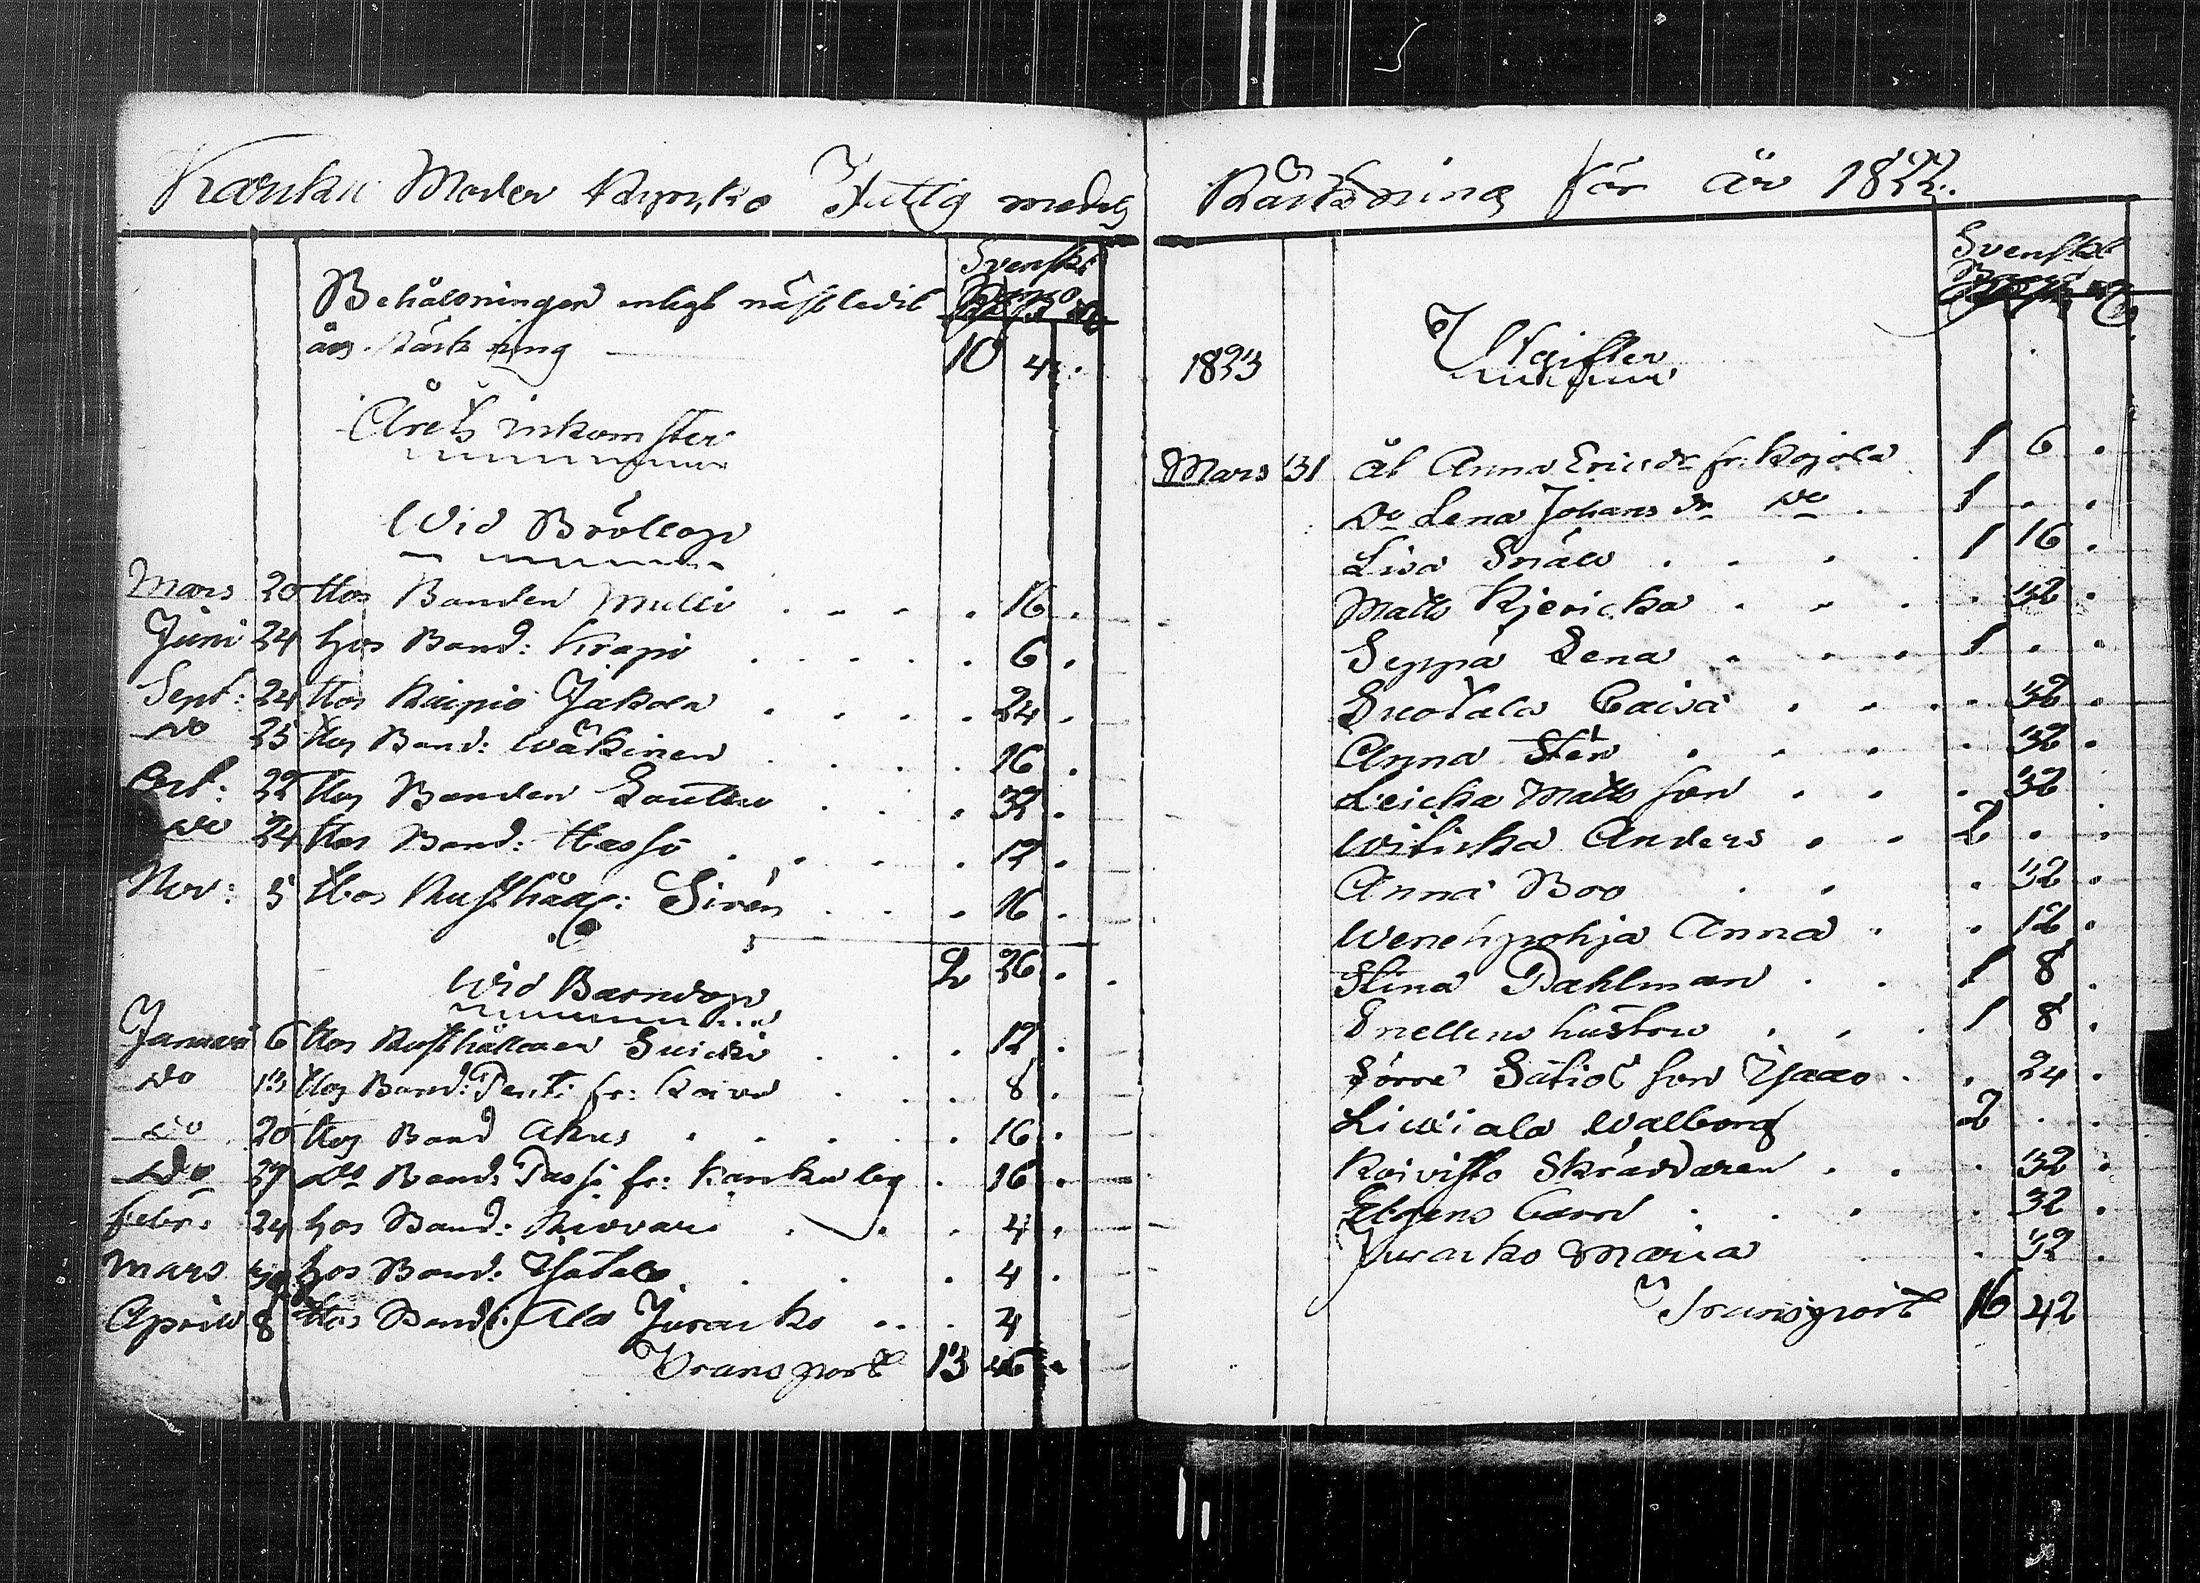 Karku Moder Kyrko Fattig medels
Svenskt
Behållningen enligt nästledit Banco
års Räkning 10 4 .
Årets inkomster
Wid Bröllop
Mars 20 Hos Bonden Mulli . . . . 16 .
Juni 24 hos Bond: Krapi . . . . . 6 .
Sept: 24 Hos Raipio Jakola . . . . 24 .
Do 25 Hos Bond: Wäkinen . . . . 16 .
Oct: 22 Hos Bonden Lauttu . . . 32 .
Do 24 Hos Bond: Hassi . . . . 12 .
Nov: 5 Hos Rusthåll: Sirén . . . 16 .
2 26 .
Wid Barndop
Januari 6 Hos Rusthållaren Suicki . . . 12 .
Do 13 Hos Bond: Pentti fr: Koivu . . . 8 .
Do 20 Hos Bond Akus . . . . . 16 .
Do 27 Do Bond: Passi fr: Karku by . 16 .
Febr: 24 hos Bond: . . . 4 .
Mars 30 hos Bond: Ylatalo . . . . 4 .
April 8 Hos Bond: Ala Juracko . . . 4
Transport 13 46 .
Räkning för år 1822.
Svenskt
Banco
1823 Utgifter
Mars 31 åt Anna Ericsdr fr: Kojola 1 6 .
Do Lena Johansdr Do . 1 . .
Lisa Snäll . . . . 1 16 .
Matts Kjericka . . . . 32 .
Seppä Lena . . . 1 . .
Suotala Caisa . . . . 32 .
Anna Stén . . . . . 32 .
Leicka Matts son . . . 32
Witicka Anders . . 2 . .
Anna Boo . . . 32 .
Wenehpohja Anna . . 12 .
Stina Dahlman . . 1 8 .
Snellens hustru . . . 1 8 .
Sörre Sätiol son Ysaac . . 24 .
Liuxiala Walborg 2 . .
Koivisto Skräddaren . . . 32 .
Elgens Carl . . . . 32 .
Juracko Maria . . 32 .
Transport 16 42